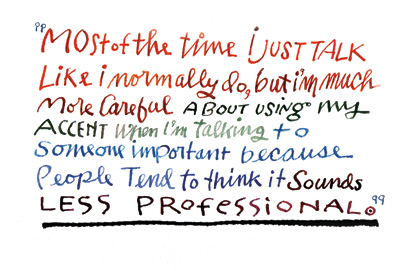 "MOST of the time i JUST TALK
Like i normally do, but i'm much
More Careful ABOUT using my
ACCENT When I'm talking to
Someone important because
People Tend to think it Sounds
LESS PROFESSIONAL."